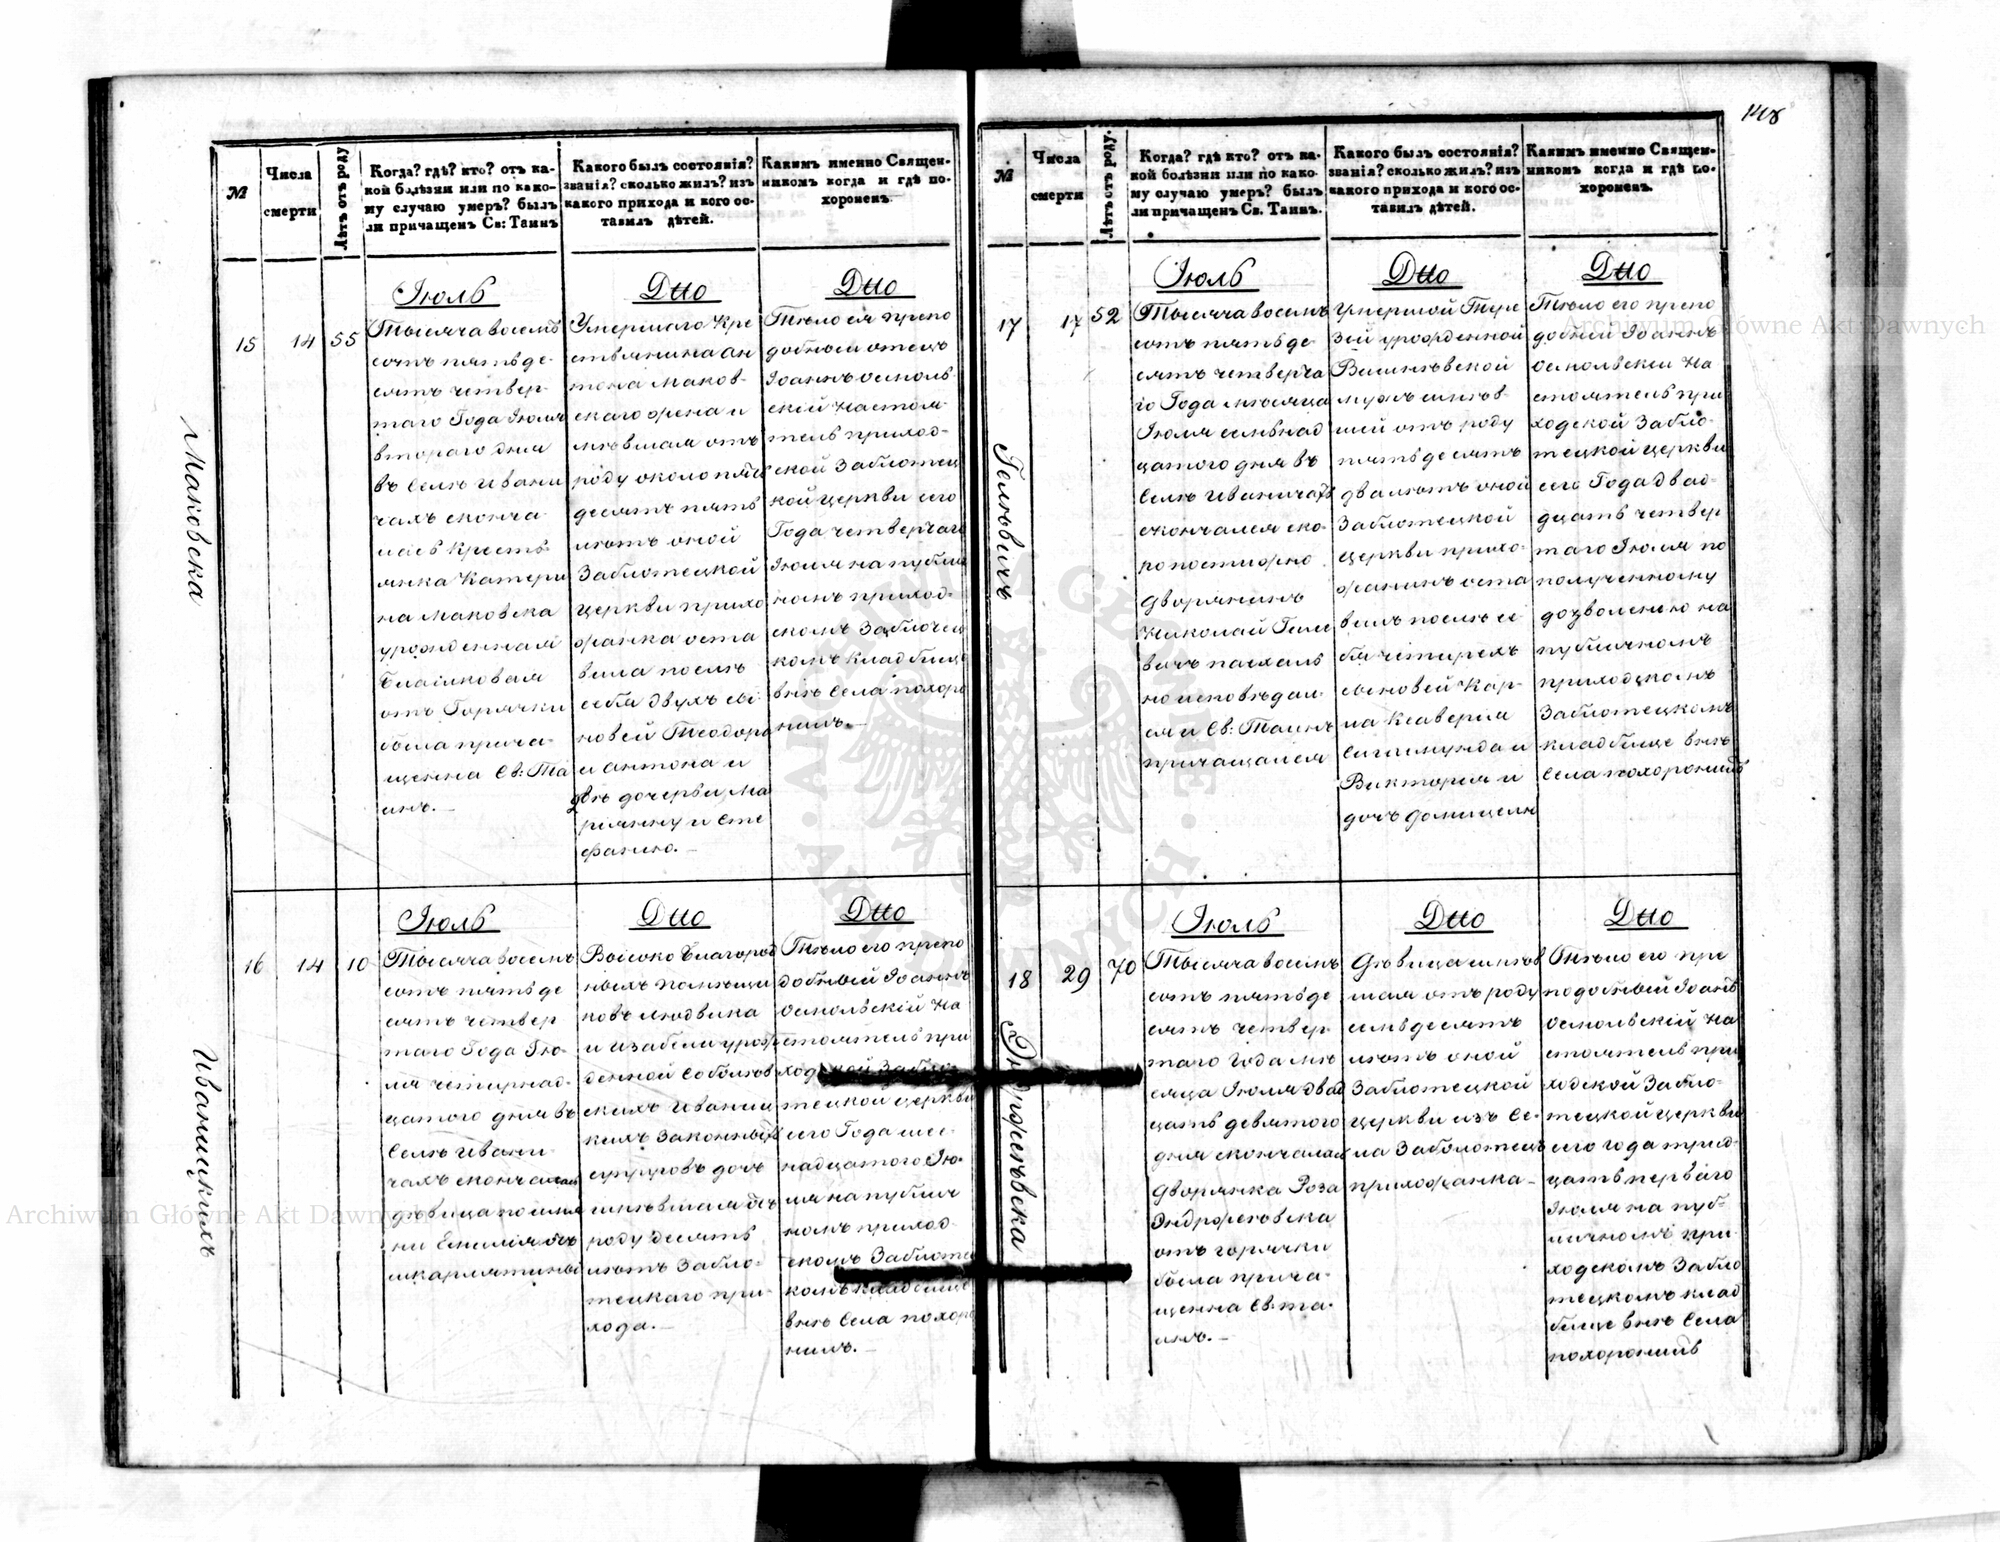 148
№
Числа
смерти
Лѣтъ отъ роду
Когда? гдѣ? кто? отъ ка-
кой болѣзни или по како-
му случаю умеръ? былъ
ли причащенъ Св: Таинъ
Какого былъ состоянія?
званія? сколько жилъ? изъ
какого прихода и кого ос-
тавилъ дѣтей.
Какимъ именно Священ-
никомъ когда и гдѣ по-
хороненъ.
Маковска
15
14
55
Іюль
Тысяча восемъ
сотъ пятьде
сятъ четвер
таго Года Іюля
втораго дня
въ Селѣ Ивани
чахъ сконча
лась Кресть
янка Катери
на Маковска
урожденная
отъ Горячки
была прича-
щенна Св: Та
инъ.—
Dtto
Умершаго Кре
стьянина Ан
тона Маков-
скаго жена и
мѣвшая отъ
роду около пять
десятъ пять
лѣтъ оной
Заблотецкой
церкви прихо
жанка оста
вила послѣ
себя двухъ сы
новей Теодора
и Антона и
двѣ дочерьи Ма
ріянну и Сте
фанію.—
Dtto
Тѣло ея препо
добный отецъ
Іоаннъ Осмоль-
скій настоя-
тель приход-
ской Заблотец
кой церкви сего
Года четвертаго
Іюля на публич
номъ приход-
скомъ Заблотец
комъ кладбище
внѣ Села похоро
нилъ.—
Иваницкихъ
16
14
10
Іюль
Тысяча восемъ
сотъ пятьде
сятъ четвер
таго Года Ію-
ля четырнад-
цатого дня въ
Селѣ Ивани-
чахъ скончалась
дѣвица по имя
ни Емилія отъ
шкарлятины
Dtto
Высоко Благород
ныхъ помѣщи
ковъ Людвика
и Изабели урож
денной Соболѣв
скихъ Иваниц
кихъ законныхъ
супруговъ дочь
имѣвшая отъ
роду десять
лѣтъ Забло-
тецкаго при-
хода.—
Dtto
Тѣло его препо
добный Іоаннъ
Осмольскій на
стоятель при
ходской Забло-
тецкой церкви
сего Года шес-
надцатого Ію-
ля на публич
номъ приход-
скомъ Заблотец
комъ кладбище
внѣ Села похоро
нилъ.—
№
Числа
смерти
Лѣтъ отъ роду.
Когда? гдѣ кто? отъ ка-
кой болѣзни или по како-
му случаю умеръ? былъ
ли причащенъ Св. Таинъ.
Какого былъ состоянія?
званія? сколько жилъ? изъ
какого прихода и кого ос-
тавилъ дѣтей.
Какимъ именно Священ-
никомъ когда и гдѣ по-
хороненъ.
17
17
52
Іюль
Тысяча восемъ
сотъ пятьде
сятъ четверта
го Года мѣсяца
Іюля семьнад
цатого дня въ
Селѣ Иваничахъ
скончался ско-
ропостижно
Дворянинъ
Николай
но исповѣдал-
ся и Св: Таинъ
причащался
Dtto
Умершой Тере
зіи урожденной
мужъ имѣв-
шій отъ роду
пятьдесятъ
два лѣтъ оной
Заблотецкой
церкви прихо-
жанинъ оста
вилъ послѣ се
бя четырехъ
сыновей Кар-
ла Ксаверія
Сигизмунда и
Викторія и
дочъ Домицелю
Dtto
Тѣло его препо
добный Іоаннъ
Осмольскій на
стоятель при
ходской Забло-
тецкой церкви
сего Года двад-
цать четвер
таго Іюля по
полученному
дозволенію на
публичномъ
приходскомъ
Заблотецкомъ
кладбище внѣ
Села похоронилъ
18
29
70
Іюль
Тысяча восемъ
сотъ пятьде
сятъ четвер-
таго Года мѣ
сяца Іюля двад
цать девятого
дня скончалась
Дворянка Роза
отъ горячки
была прича-
щенна Св: Та-
инъ.—
Dtto
Дѣвица имѣв
шая отъ роду
семьдесятъ
лѣтъ оной
Заблотецкой
церкви изъ Се-
ла Заблотецъ
прихожанка—
Dtto
Тѣло его пре
подобный Іоаннъ
Осмольскій на
стоятель при
ходской Забло-
тецкой церкви
сего года трид-
цать перваго
Іюля на пуб-
личномъ при
ходскомъ Забло
тецкомъ клад
бище внѣ Села
похоронилъ
Archiwum Główne Akt Dawnych
Archiwum Główne Akt Dawnych